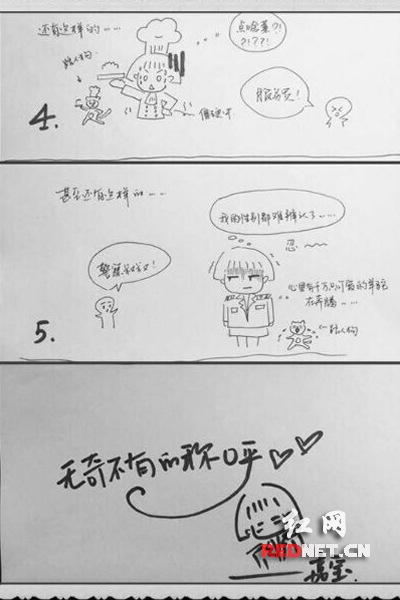 还有这样的……
点啥菜?!
?!???!
路人狗
服务员!
4.
甚至还有这样的……
我的性别都难辨认了……
忍
警察叔叔!
心里有千万只可爱的羊驼
在奔腾……
路人狗
5.
无奇不有的称呼
红网
REDNET.CN
嘉宝